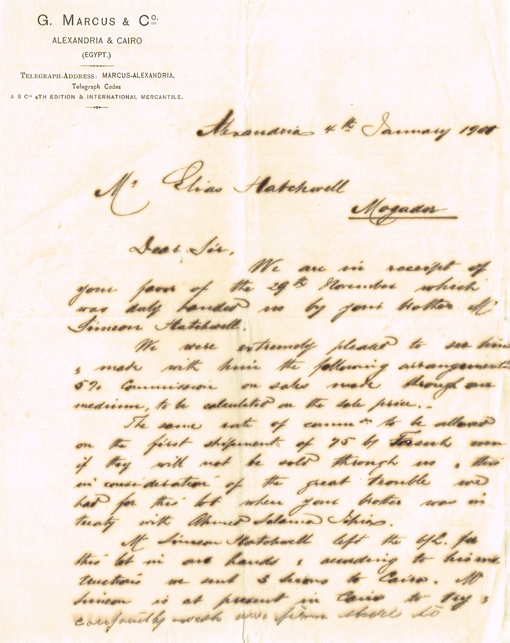 G. MARCUS & Co.
ALEXANDRIA & CAIRO
(EGYPT.)
TELEGRAPH-ADDRESS: MARCUS-ALEXANDRIA.
Telegraph Codes
A B Cᵒ 4TH EDITION & INTERNATIONAL MERCANTILE.
Alexandria 4th January 1900
Mr Elias Hatchwell
Mogador
Dear Sir,
We are in receipt of
your favor of the 29th November which
was duly handed us by your brother Mr
Simeon Hatchwell.
We were extremely pleased to see him
& made with him the following arrangements
5% Commission on sales made through our
medium, to be calculated on the sale price.
The same rate of commn to be allowed
on the first shipment of 75 bs even
if they will not be sold through us, this
in consideration of the great trouble we
had for this lot when your brother was in
treaty with Ahmed
Mr Simeon Hatchwell left the B/L for
this lot in our hands & according to his ins
tructions we sent 3 to Cairo. Mr
Simeon is at present in Cairo to try &
with our firm there to